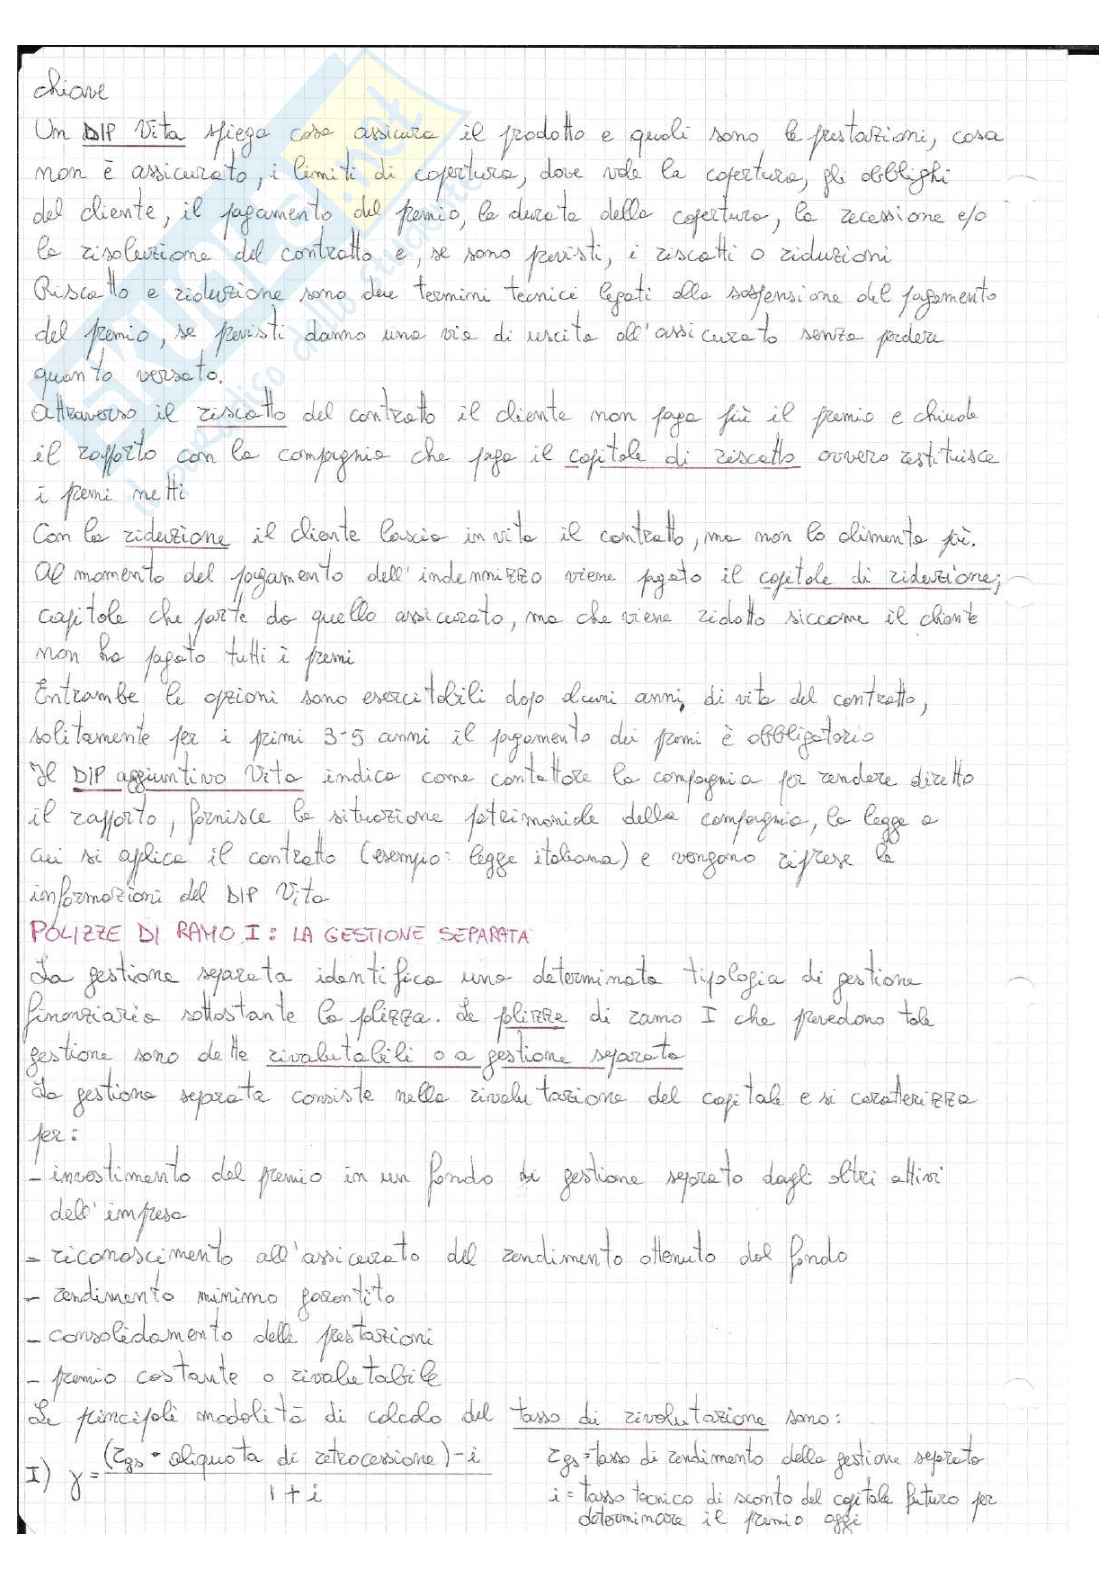 chiave
Un DIP Vita spiega cosa assicura il prodotto e quali sono le prestazioni, cosa
non è assicurato, i limiti di copertura, dove vale la copertura, gli obblighi
del cliente, il pagamento del premio, la durata della copertura, la recessione e/o
la risoluzione del contratto e, se sono previsti, i riscatti o riduzioni
Riscatto e riduzione sono due termini tecnici legati alla sospensione del pagamento
del premio, se previsti danno una via di uscita all'assicurato senza perdere
quanto versato.
Attraverso il riscatto del contratto il cliente non paga più il premio e chiude
il rapporto con la compagnia che paga il capitale di riscatto ovvero restituisce
i premi netti
Con la riduzione il cliente lascia in vita il contratto, ma non lo alimenta più.
Al momento del pagamento dell'indennizzo viene pagato il capitale di riduzione;
capitale che parte da quello assicurato, ma che viene ridotto siccome il cliente
non ha pagato tutti i premi
Entrambe le opzioni sono esercitabili dopo alcuni anni, di vita del contratto,
solitamente per i primi 3-5 anni il pagamento dei premi è obbligatorio
Il DIP aggiuntivo Vita indica come contattare la compagnia per rendere diretto
il rapporto, fornisce la situazione patrimoniale della compagnia, la legge a
cui si applica il contratto (esempio: legge italiana) e vengono riprese le
informazioni del DIP Vita
POLIZZE DI RAMO I: LA GESTIONE SEPARATA
La gestione separata identifica una determinata tipologia di gestione
finanziaria sottostante la plizza. Le plizze di ramo I che prevedono tale
gestione sono dette rivalutabili o a gestione separata
La gestione separata consiste nella rivalutazione del capitale e si caratterizza
per:
- investimento del premio in un fondo di gestione separato dagli altri attivi
dell'impresa
- riconoscimento all'assicurato del rendimento ottenuto dal fondo
- rendimento minimo garantito
- consolidamento delle prestazioni
- premio costante o rivalutabile
Le principali modalità di calcolo del tasso di rivalutazione sono:
I) γ = (rgs · aliquota di retrocessione) - i / 1 + i
rgs = tasso di rendimento della gestione separata
i = tasso tecnico di sconto del capitale futuro per
determinare il premio oggi